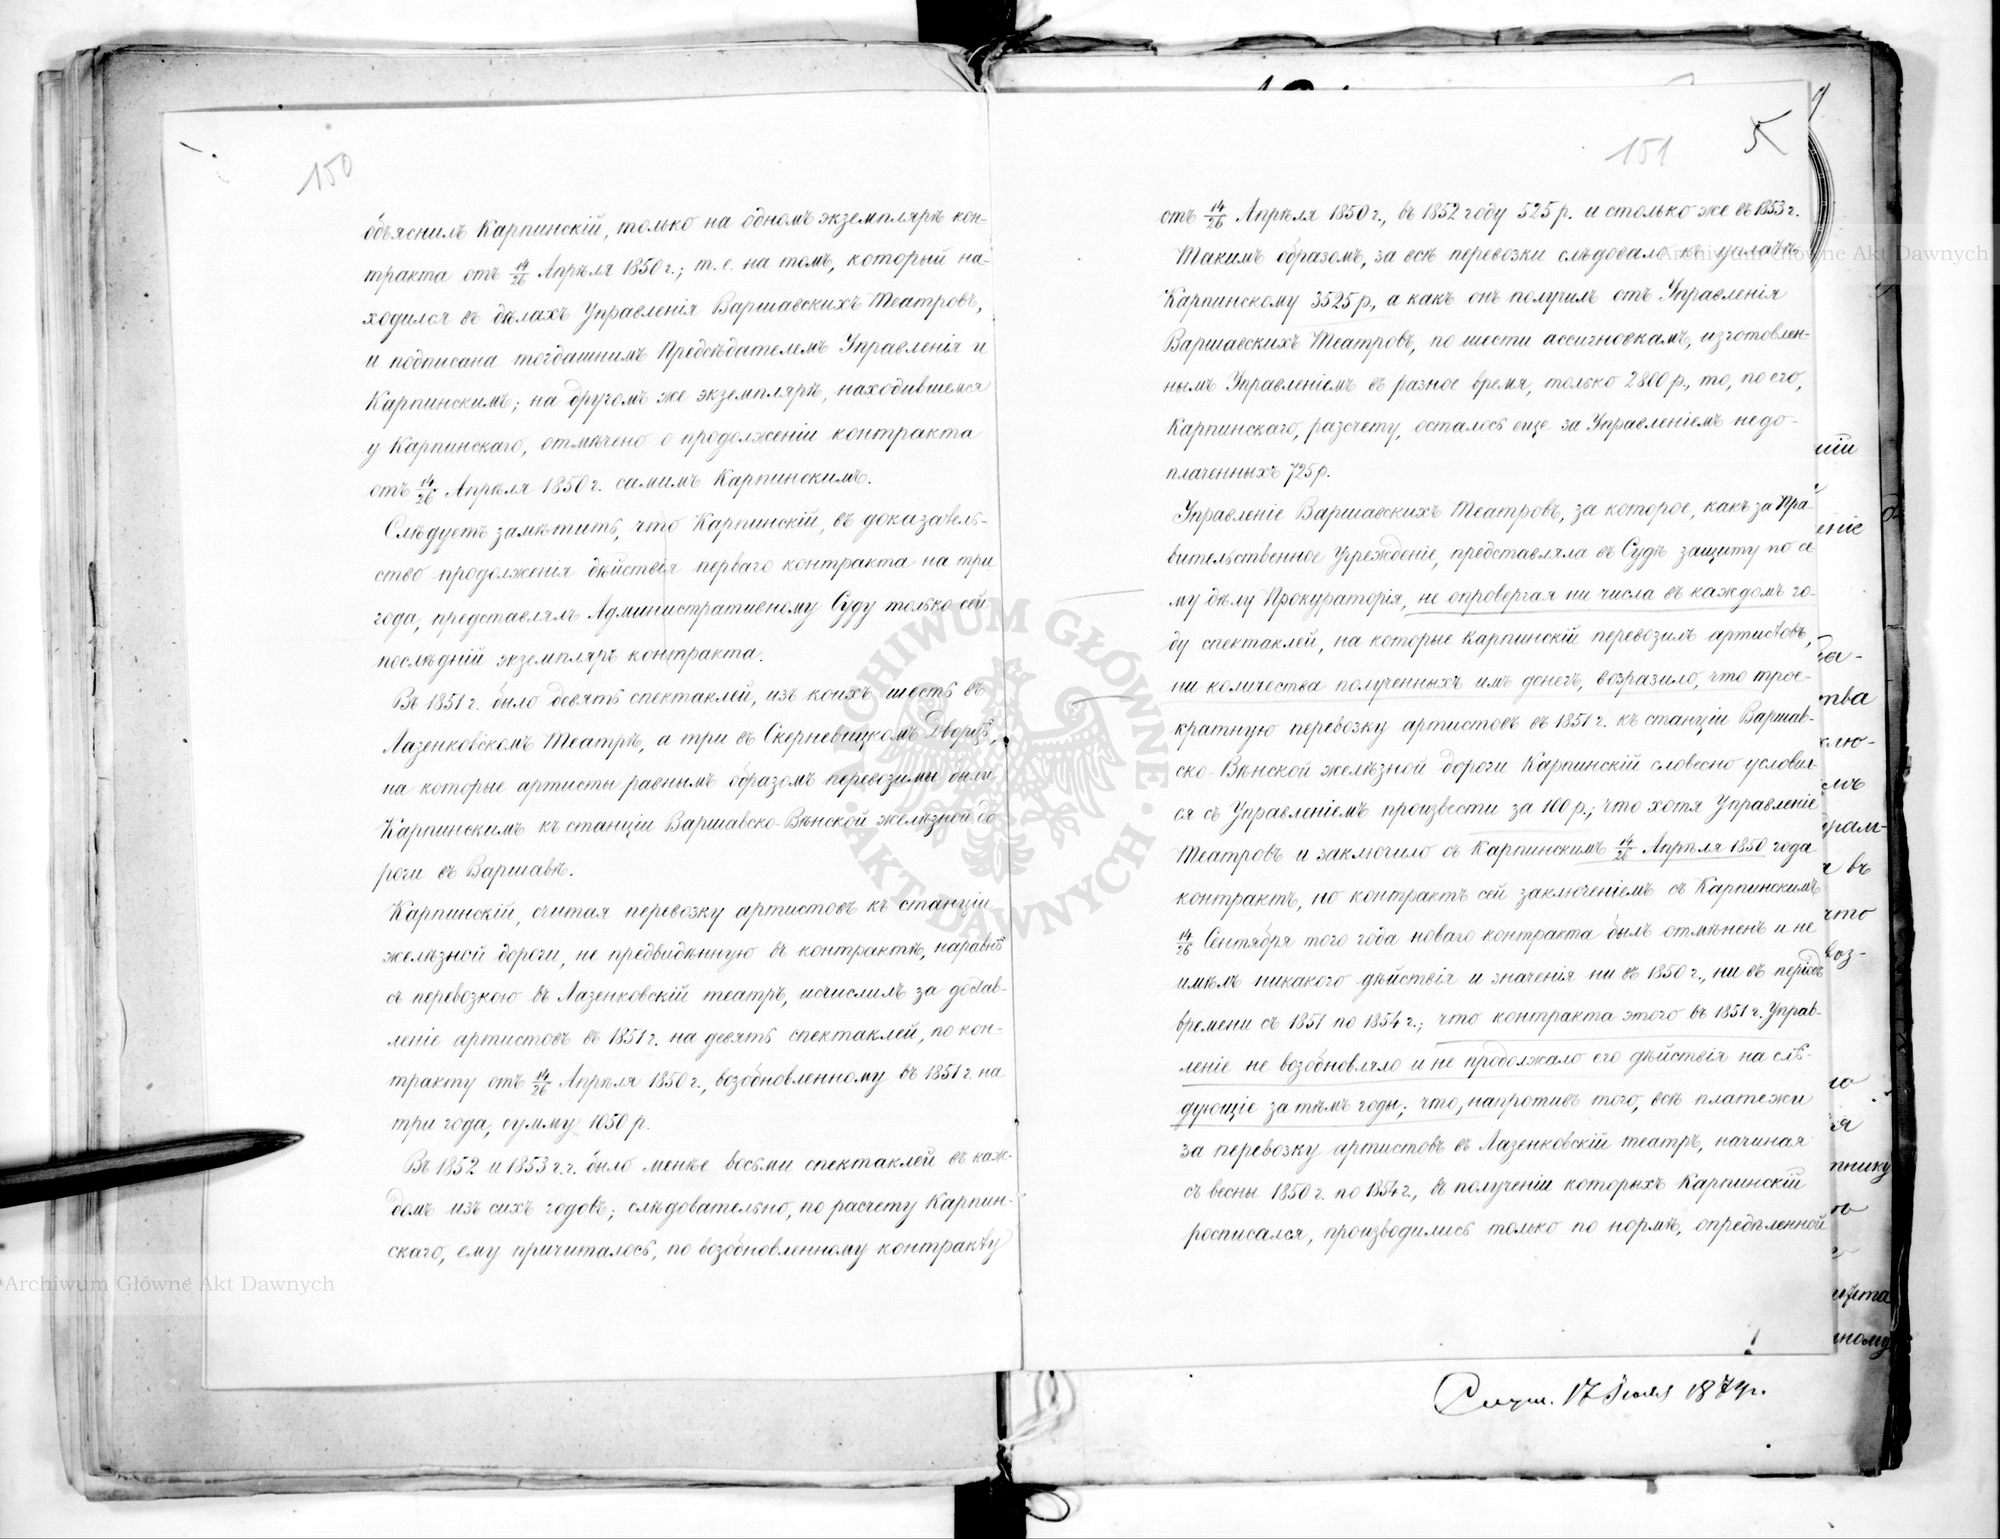 150
объяснилъ Карпинскій, только на одномъ экземплярѣ кон-
тракта отъ 14/26 Апрѣля 1850 г.; т. е. на томъ, который на-
ходился въ дѣлахъ Управленія Варшавскихъ Театровъ,
и подписана тогдашнимъ Предсѣдателемъ Управленія и
Карпинскимъ; на другомъ же экземплярѣ, находившемся
у Карпинскаго, отмѣчено о продолженіи контракта
отъ 14/26 Апрѣля 1850 г. самимъ Карпинскимъ.
Слѣдуетъ замѣтить, что Карпинскій, въ доказатель-
ство продолженія дѣйствія перваго контракта на три
года, представлялъ Административному Суду только сей
послѣдній экземпляръ контракта.
Въ 1851 г. было девять спектаклей, изъ коихъ шесть въ
Лазенковскомъ Театрѣ, а три въ Скерневицкомъ Дворцѣ,
на которые артисты равнымъ образомъ перевозимы были
Карпинькимъ къ станціи Варшавско-Вѣнской желѣзной до-
роги въ Варшавѣ.
Карпинскій, считая перевозку артистовъ къ станціи
желѣзной дороги, не предвидѣнную въ контрактѣ, наравнѣ
съ перевозкою въ Лазенковскій театръ, исчислилъ за достав-
леніе артистовъ въ 1851 г. на девять спектаклей, по кон-
тракту отъ 14/26 Апрѣля 1850 г., возобновленному въ 1851 г. на
три года, сумму 1050 р.
Въ 1852 и 1853 г.г. было менѣе восьми спектаклей въ каж-
домъ изъ сихъ годовъ; слѣдовательно, по расчету Карпин-
скаго, ему причиталось, по возобновленному контракту
151
5
отъ 14/26 Апрѣля 1850 г., въ 1852 году 525 р. и столько же въ 1853 г.
Такимъ образомъ, за всѣ перевозки слѣдовало къ уплатѣ
Карпинскому 3525 р., а какъ онъ получилъ отъ Управленія
Варшавскихъ Театровъ, по шести ассигновкамъ, изготовлен-
нымъ Управленіемъ въ разное время, только 2800 р., то, по его,
Карпинскаго, разсчету, осталось еще за Управленіемъ недо-
плаченныхъ 725 р.
Управленіе Варшавскихъ Театровъ, за которое, какъ за Пра-
вительственное Учрежденіе, представляла въ Судѣ защиту по се
му дѣлу Прокураторія, не опровергая ни числа въ каждомъ го-
ду спектаклей, на которые Карпинскій перевозилъ артистовъ,
ни количества полученныхъ имъ денегъ, возразило, что трое-
кратную перевозку артистовъ въ 1851 г. къ станціи Варшав-
ско-Вѣнской желѣзной дороги Карпинскій словесно условил-
ся съ Управленіемъ произвести за 100 р.; что хотя Управленіе
Театровъ и заключило съ Карпинскимъ 14/26 Апрѣля 1850 года
контрактъ, но контрактъ сей заключеніемъ съ Карпинскимъ
14/26 Сентября того года новаго контракта былъ отмѣненъ и не
имѣлъ никакого дѣйствія и значенія ни въ 1850 г., ни въ періодъ
времени съ 1851 по 1854 г.; что контракта этого въ 1851 г. Управ-
леніе не возобновляло и не продолжало его дѣйствія на слѣ-
дующіе за тѣмъ годы; что, напротивъ того, всѣ платежи
за перевозку артистовъ въ Лазенковскій театръ, начиная
съ весны 1850 г. по 1854 г., въ полученіи которыхъ Карпинскій
росписался, производились только по нормѣ, опредѣленной
17 Іюля 1874 г.
Archiwum Główne Akt Dawnych
Archiwum Główne Akt Dawnych
ARCHIWUM GŁÓWNE
AKT DAWNYCH